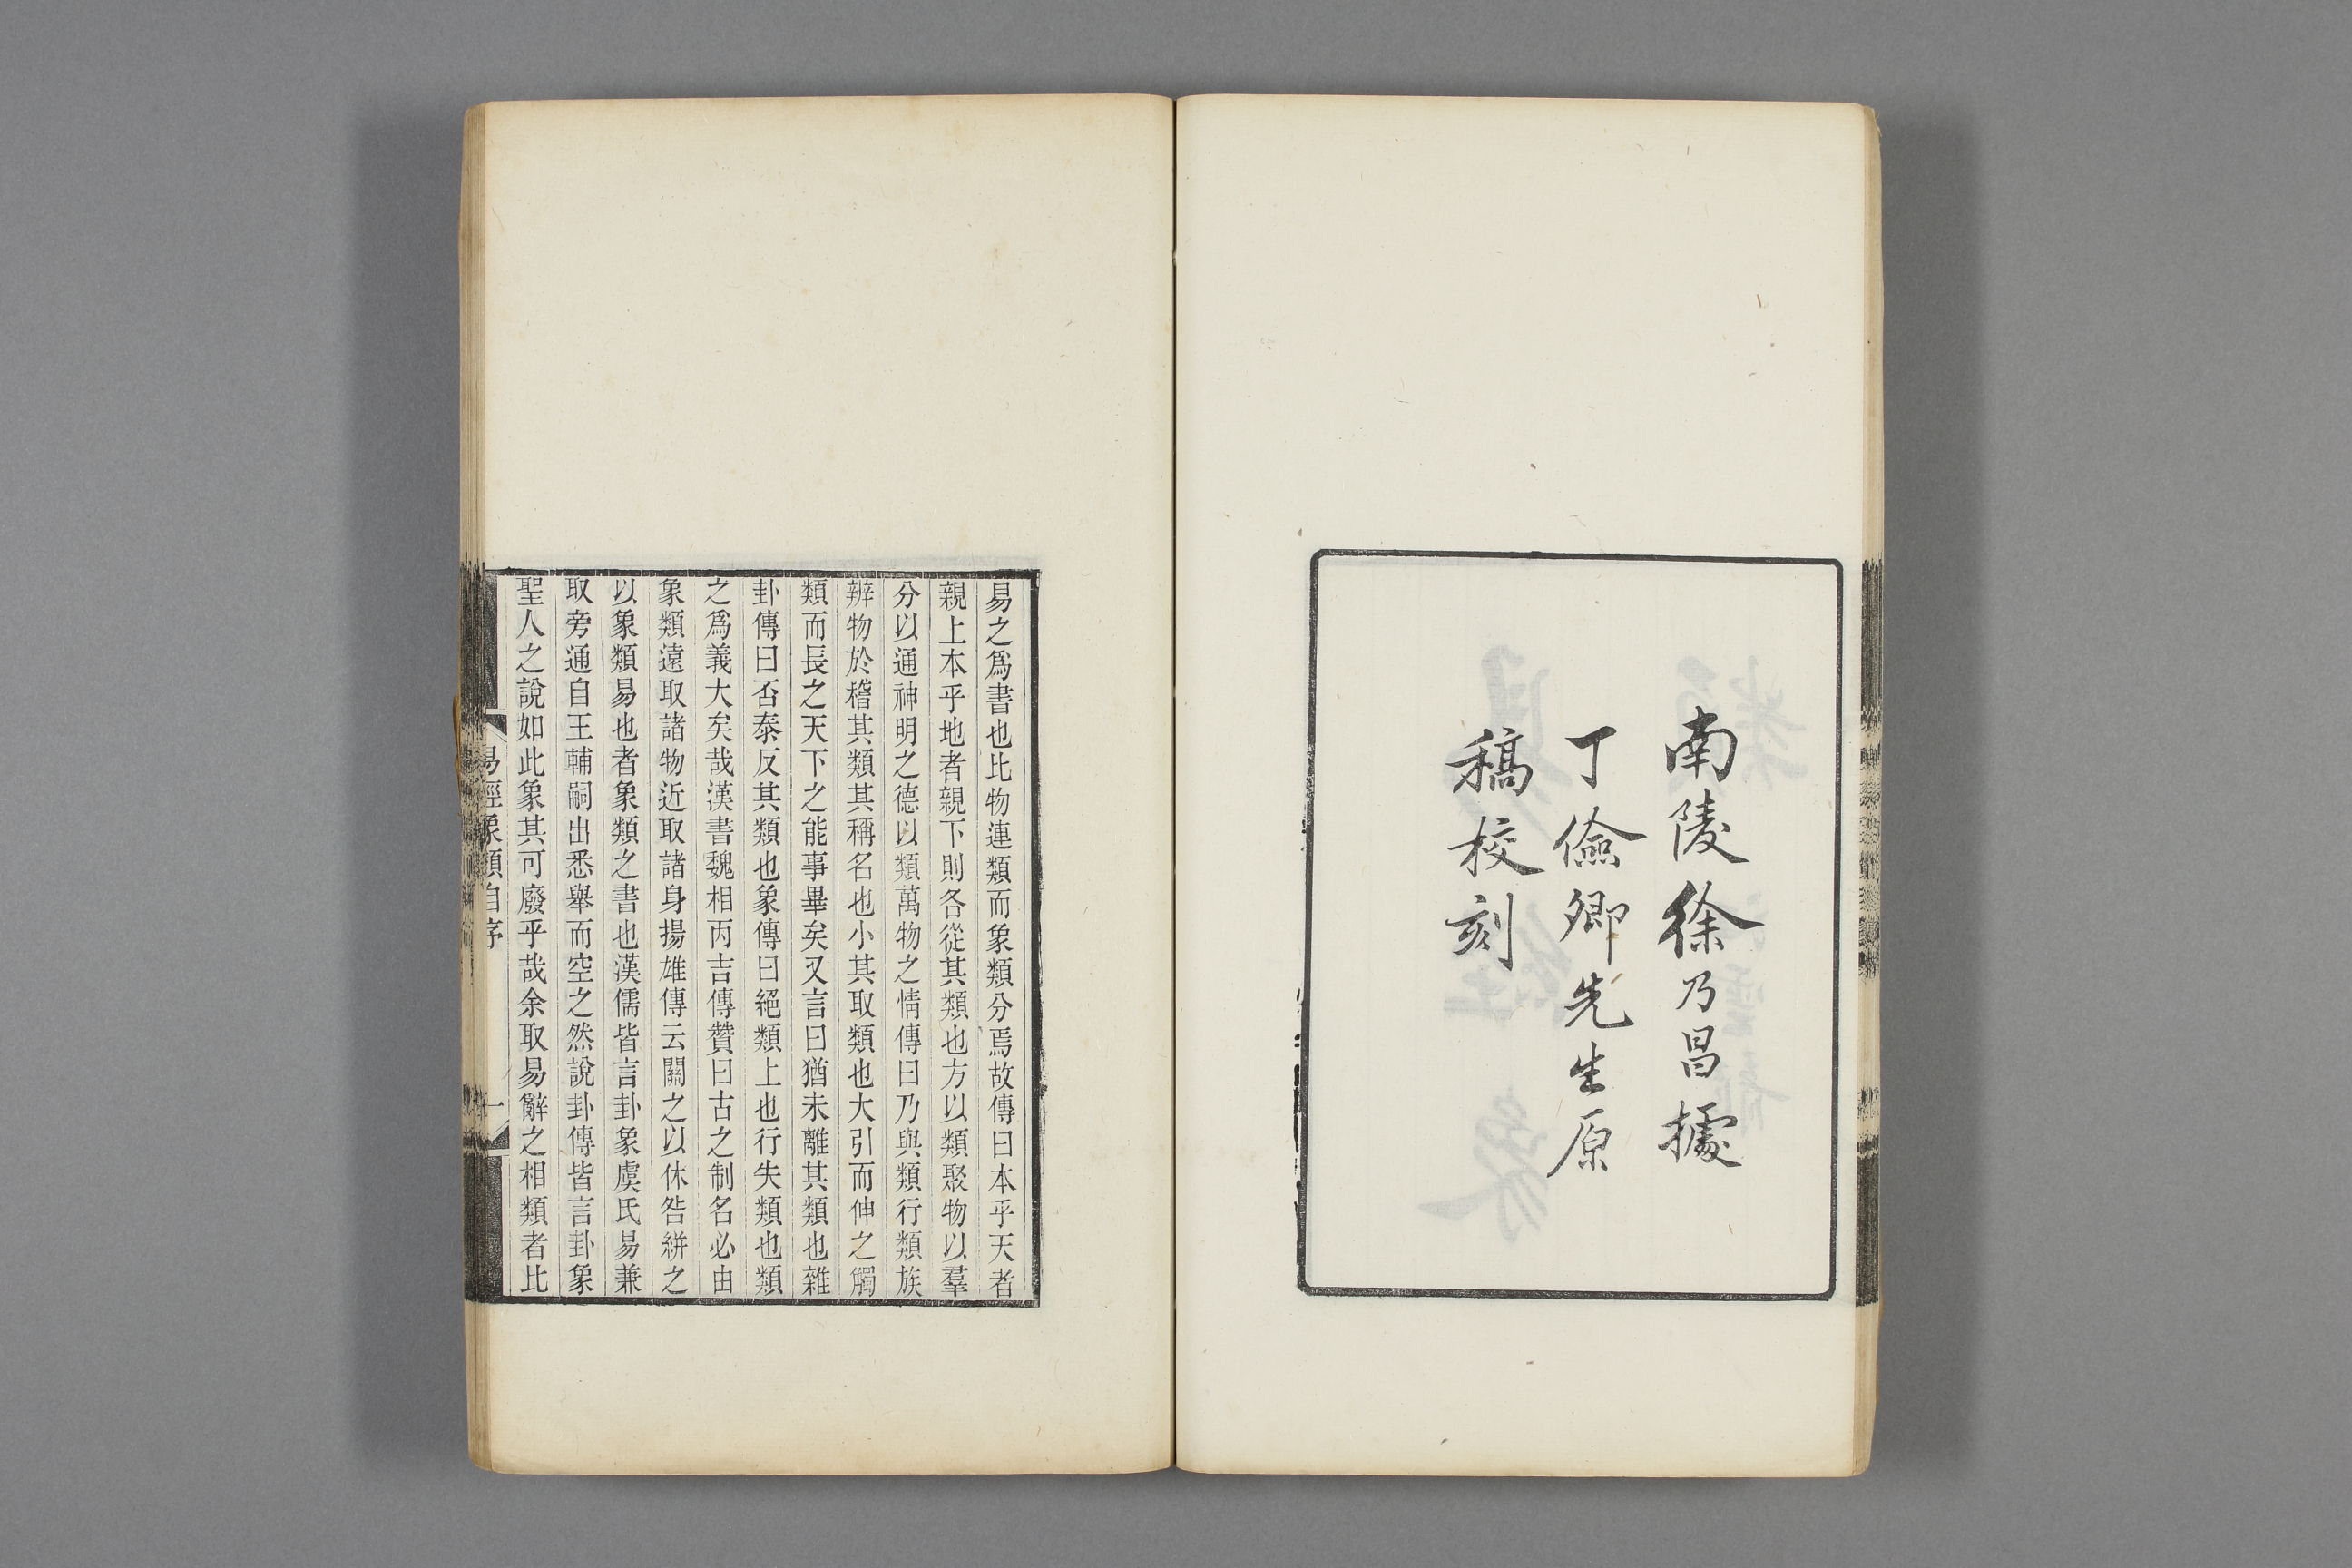 南陵徐乃昌據
丁儉卿先生原
稿校刻
易之爲書也比物連類而象類分焉故傳曰本乎天者
親上本乎地者親下則各從其類也方以類聚物以羣
分以通神明之德以類萬物之情傳曰乃與類行類族
辨物於稽其類其稱名也小其取類也大引而伸之觸
類而長之天下之能事畢矣又言曰猶未離其類也雜
卦傳曰否泰反其類也象傳曰絕類上也行失類也類
之爲義大矣哉漢書魏相丙吉傳贊曰古之制名必由
象類遠取諸物近取諸身揚雄傳云關之以休咎絣之
以象類易也者象類之書也漢儒皆言卦象虞氏易兼
取旁通自王輔嗣出悉舉而空之然說卦傳皆言卦象
聖人之說如此象其可廢乎哉余取易辭之相類者比
易經象類自序
一